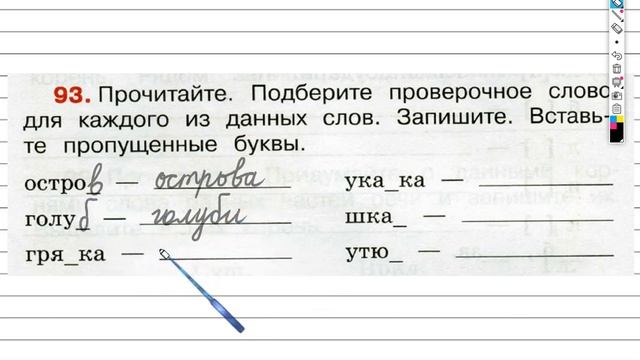 93. Прочитайте. Подберите проверочное слово
для каждого из данных слов. Запишите. Вставь-
те пропущенные буквы.
остров — острова
голуб — голуби
гря_ка —
ука_ка —
шка_ —
утю_ —